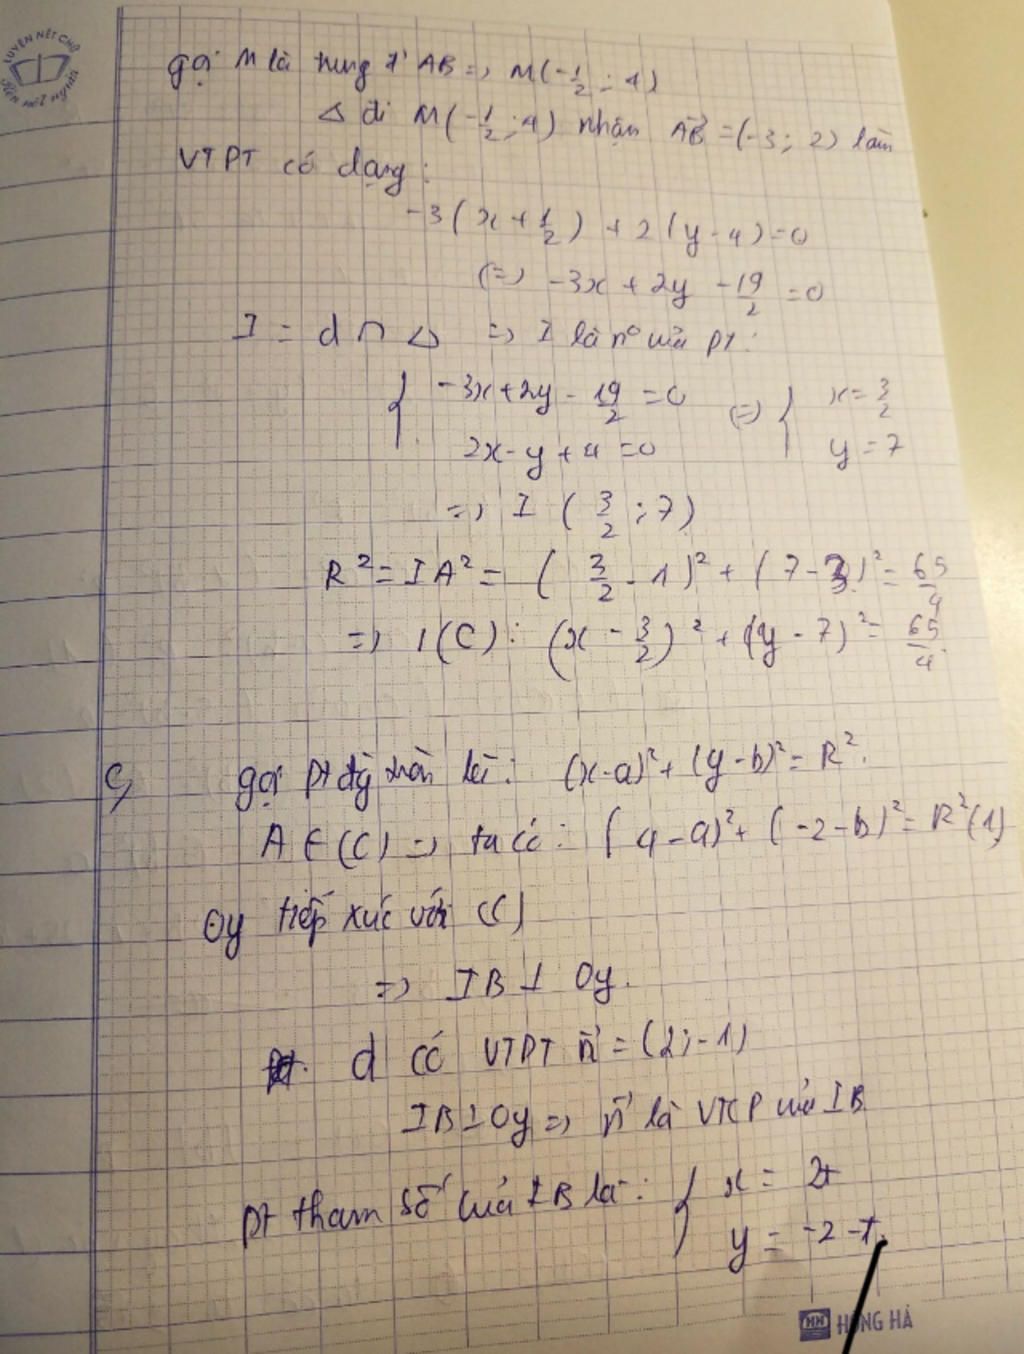 LUYỆN NÉT CHỮ
Rèn nết người
gọi M là trung đ' AB => M(-1/2; 4)
Δ đi M(-1/2; 4) nhận AB = (-3; 2) làm
VTPT có dạng:
-3(x + 1/2) + 2(y - 4) = 0
(=) -3x + 2y - 19/2 = 0
I = d ∩ Δ => I là n° của pt:
{ -3x + 2y - 19/2 = 0 (=) { x = 3/2
2x - y + 4 = 0 y = 7
=> I (3/2; 7)
R² = IA² = (3/2 - 1)² + (7 - 3)² = 65/4
=> (C): (x - 3/2)² + (y - 7)² = 65/4
c, gọi pt đg tròn là: (x-a)² + (y-b)² = R².
A ∈ (C) => ta có: (4-a)² + (-2-b)² = R² (1)
Oy tiếp xúc với (C)
=> IB ⊥ Oy.
d có VTPT n = (2; -1)
IB ⊥ Oy => n là VTCP của IB
pt tham số của IB là: { x = 2t
y = -2 - t
HH HỒNG HÀ